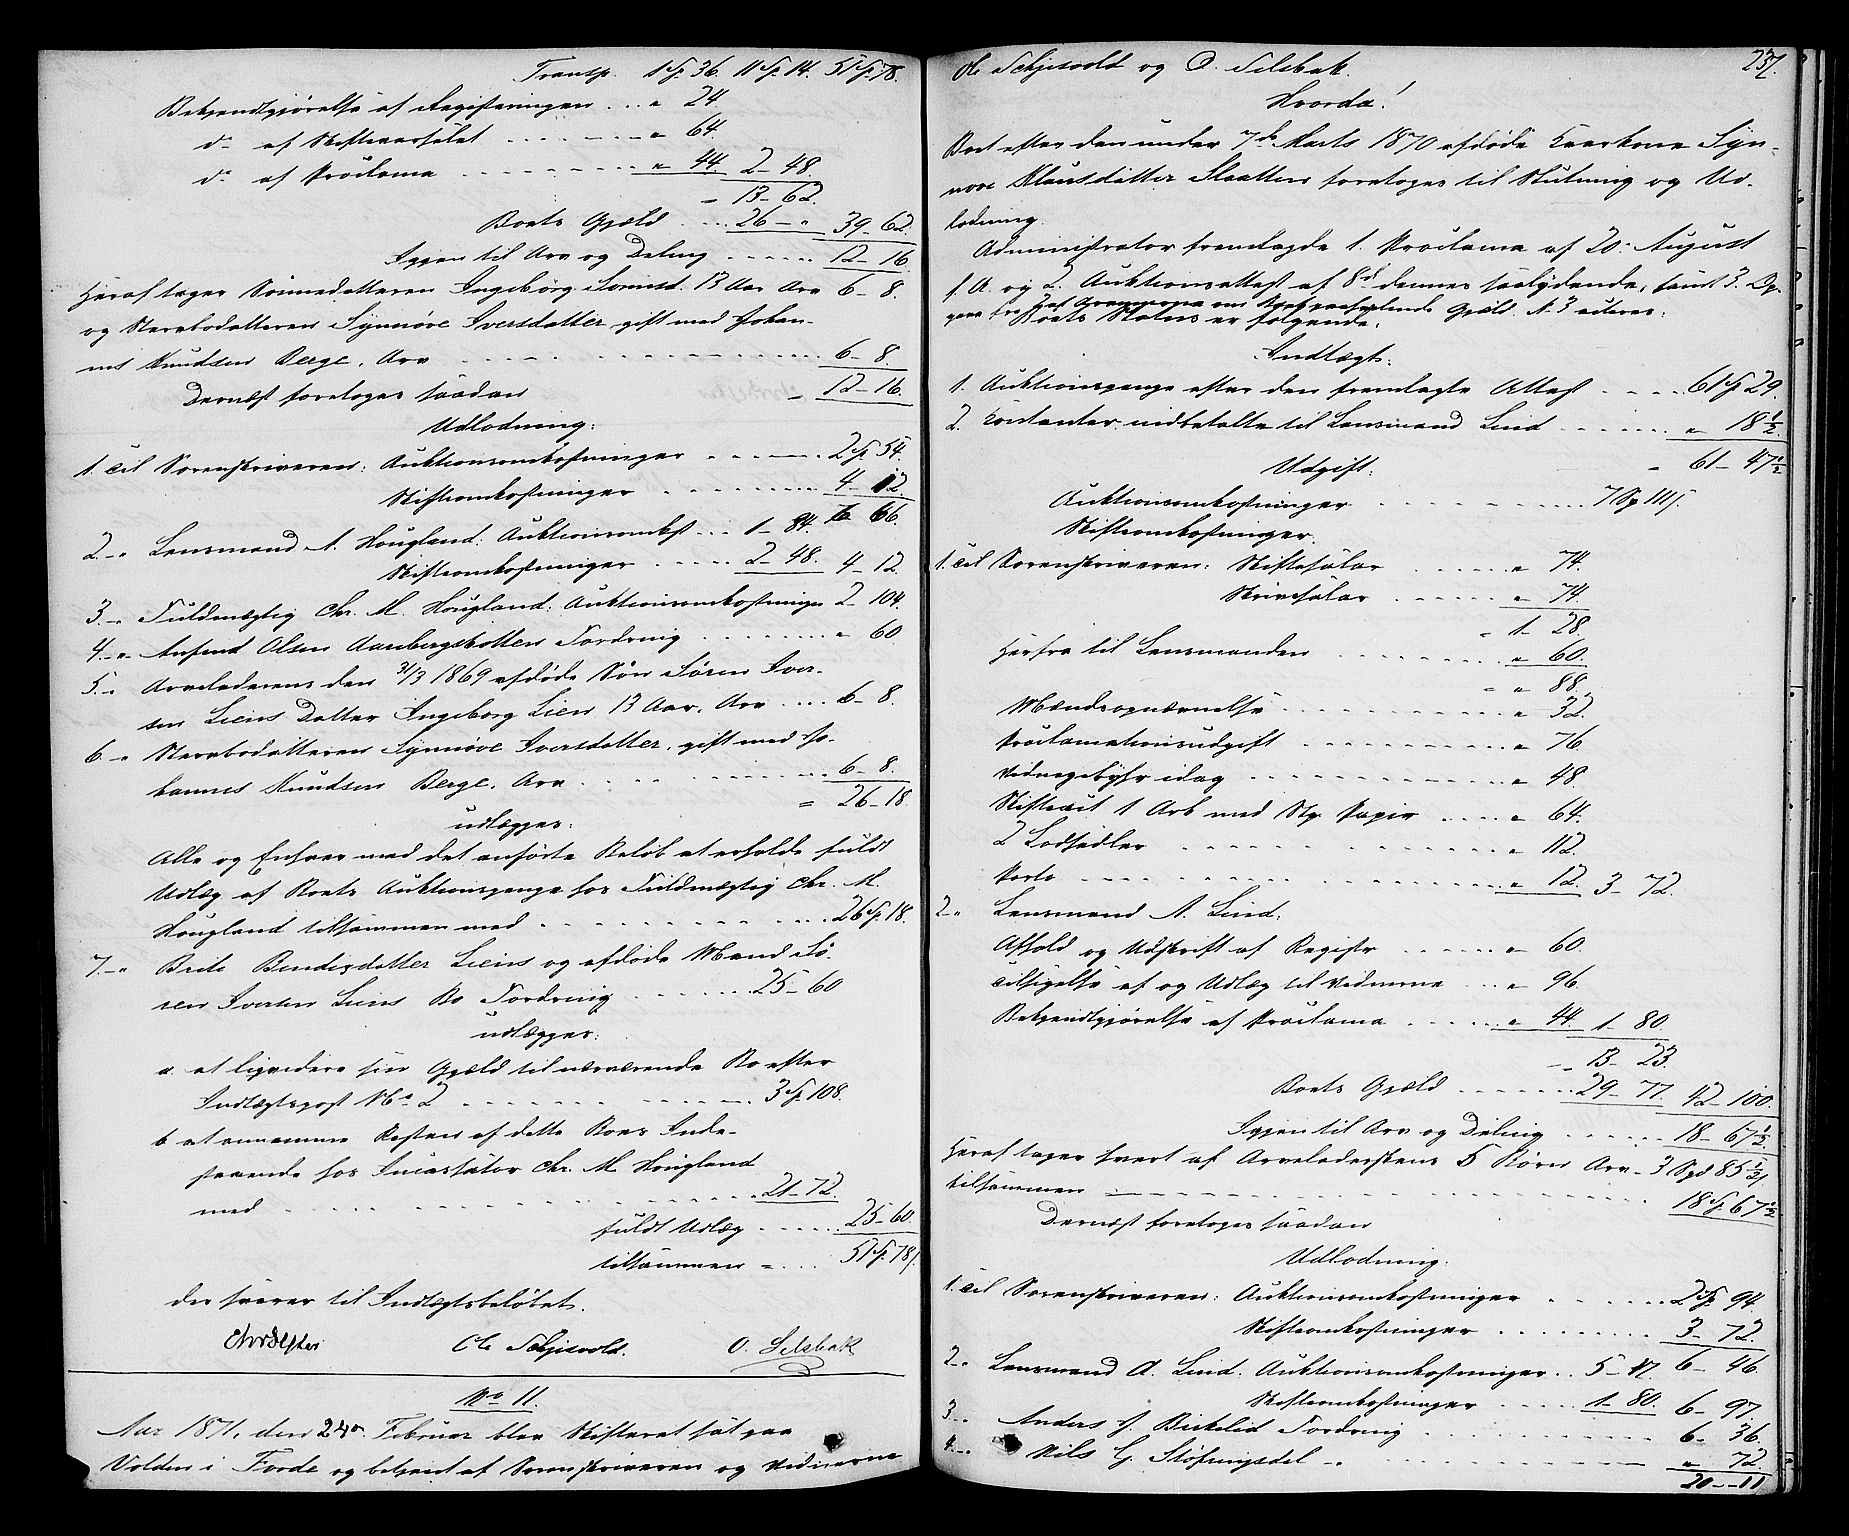 Transp. 1 Sp. 36. 11 Sp. 14. 51 Sp. 78.
Bekjendtgjørelse af Registeringen . . . " 24.
do af Skiftevarselet . . . . . . " 64.
do af Proclama . . . . . . . " 44. 2 - 48.
= 13 - 62.
Boets Gjæld . . . . 26 - " 39 - 62.
Igjen til Arv og Deling . . . . . . 12 - 16.
Heraf tager Sønnedatteren Ingeborg Sørensd. 13 Aar Arv 6 - 8.
og Stervbodatteren Synnøve Iversdatter, gift med Johan-
nes Knudsen Berge, Arv . . . . . . 6 - 8.
Dernæst foretoges saadan = 12 - 16.
Udlodning:
1. Til Sorenskriveren: Auktionsomkostninger . . . . 2 Sp. 54.
Skifteomkostninger . . . . . . 4 - 12.
6 66.
2 - " Lensmand N. Hougland: Auktionsomkst . . . 1 - 84.
Skifteomkostninger . . . . . 2 - 48. 4 - 12.
3. - " Fuldmægtig Chr. M. Hougland: Auktionsomkostninger 2 - 104.
4. - " Anfind Olsen Aarbergsbotten Fordring . . . . . . . " 60
5. - " Arveladerens den 31/3 1869 afdøde Søn Søren Iver-
sen Liens Datter Ingeborg Lien 13 Aar, Arv . . . . 6 - 8.
6. - " Stervbodatteren Synnøve Iversdatter, gift med Jo-
hannes Knudsen Berge, Arv . . . . . . 6 - 8.
= 26 - 18.
udlægges:
Alle og Enhver med det anførte Beløb at erholde fuldt
Udlæg af Boets Auktionspenge hos Fuldmægtig Chr. M.
Hougland tilsammen med . . . . . . . 26 Sp. 18.
7. - " Brite Bendixdatter Liens og afdøde Mand Sø-
ren Iversen Liens Bo Fordring . . . . . . . 25 - 60
udlægges:
a. at liqvidere sin Gjæld til nærværende Bo efter
Indtægtspost No 2 . . . . . . . . . 3 Sp. 108.
b. at annamme Resten af dette Boes Inde-
staaende hos Incassator Chr. M. Hougland
med . . . . . . . . . . 21 - 72.
fuldt Udlæg . . . . . 25 - 60.
tilsammen = . . . . 51 Sp. 78 s.
der svarer til Indtægtsbeløbet.
Ole Schjesvold. O. Selsbak
No 11.
Aar 1871, den 24de Februar blev Skifteret sat paa
Volden i Førde og betjent af Sorenskriveren og Vidnerne
237.
Ole Schjesvold og O. Selsbak.
Hvorda!
Boet efter den under 7de Marts 1870 afdøde Kaarkone Syn-
nøve Klausdatter Slaatten foretoges til Slutning og Ud-
lodning.
Administrator fremlagde 1. Proclama af 20. August
f. A. og 2. Auktionsattest af 8de dennes saalydende, samt 3. Op-
gave fra af Arvingerne om Boets paahvilende Gjæld. N. 3 acteres.
Boets Status er følgende:
Indtægt:
1. Auktionspenge efter den fremlagte Attest . . . . 61 Sp 29.
2. Kontanter indbetalte til Lensmand Lind . . . . . . " 18 1/2.
= 61 - 47 1/2
Udgift:
Auktionsomkostninger . . . . . . . . 7 Sp 111 s.
Skifteomkostninger.
1. Til Sorenskriveren: Skiftesalær . . . . . . " 74.
Skrivesalær . . . . . . " 74.
= 1 - 28.
Herfra til Lensmanden . . . . . . . . " 60.
= " 88.
Mændsopnævnelse . . . . . . . . . " 32.
Proclamationsudgift . . . . . . . . . " 76.
Vidnegebyhr idag . . . . . . . . . " 48.
Skifteact 1 Ark med Stp. Papir . . . . " 64.
2 Lodsedler . . . . . . . . . " 112.
Porto . . . . . . . . . " 12. 3 - 72.
2 - " Lensmand A. Lind:
Afhold og Udskrift af Registr . . . . . . " 60.
Tilsigelse af og Udlæg til Vidnerne . . . " 96.
Bekjendtgjørelse af Proclama . . . . . " 44. 1 - 80.
= 13 - 23.
Boets Gjæld . . . . . . . 29 - 77. 42 - 100.
Igjen til Arv og Deling . . . . . . 18 - 67 1/2
Heraf tager hvert af Arveladerskens 5 Børn Arv - 3 Spd 85 1/2 s
tilsammen . . . . . . . . . 18 Sp. 67 1/2
Dernæst foretoges saadan
Udlodning:
1. Til Sorenskriveren: Auktionsomkostninger . . . . . . 2 Sp. 94.
Skifteomkostninger . . . . . . . . 3 - 72.
6 - 46.
2 - " Lensmand A. Lind. Auktionsomkostninger . . 5 - 17.
Skifteomkostninger . . . . . 1 - 80. 6 - 97.
3. - " Anders J. Birkelid Fordring . . . . . . . . 6 - 36.
4. - " Nils G. Støfringsdal - " . . . . . . . . . " 72.
20 - 11